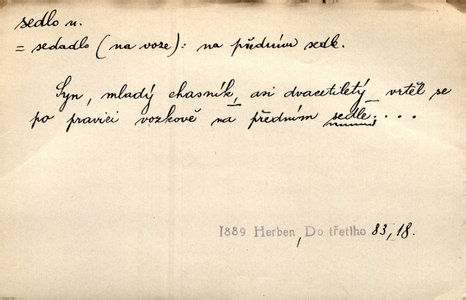 sedlo n.
= sedadlo (na voze): na předním sedle.
Syn, mladý chasník, asi dvacetiletý vrtěl se
po pravici vozkově na předním sedle: . . .
1889 Herben, Do třetího 83, 18.